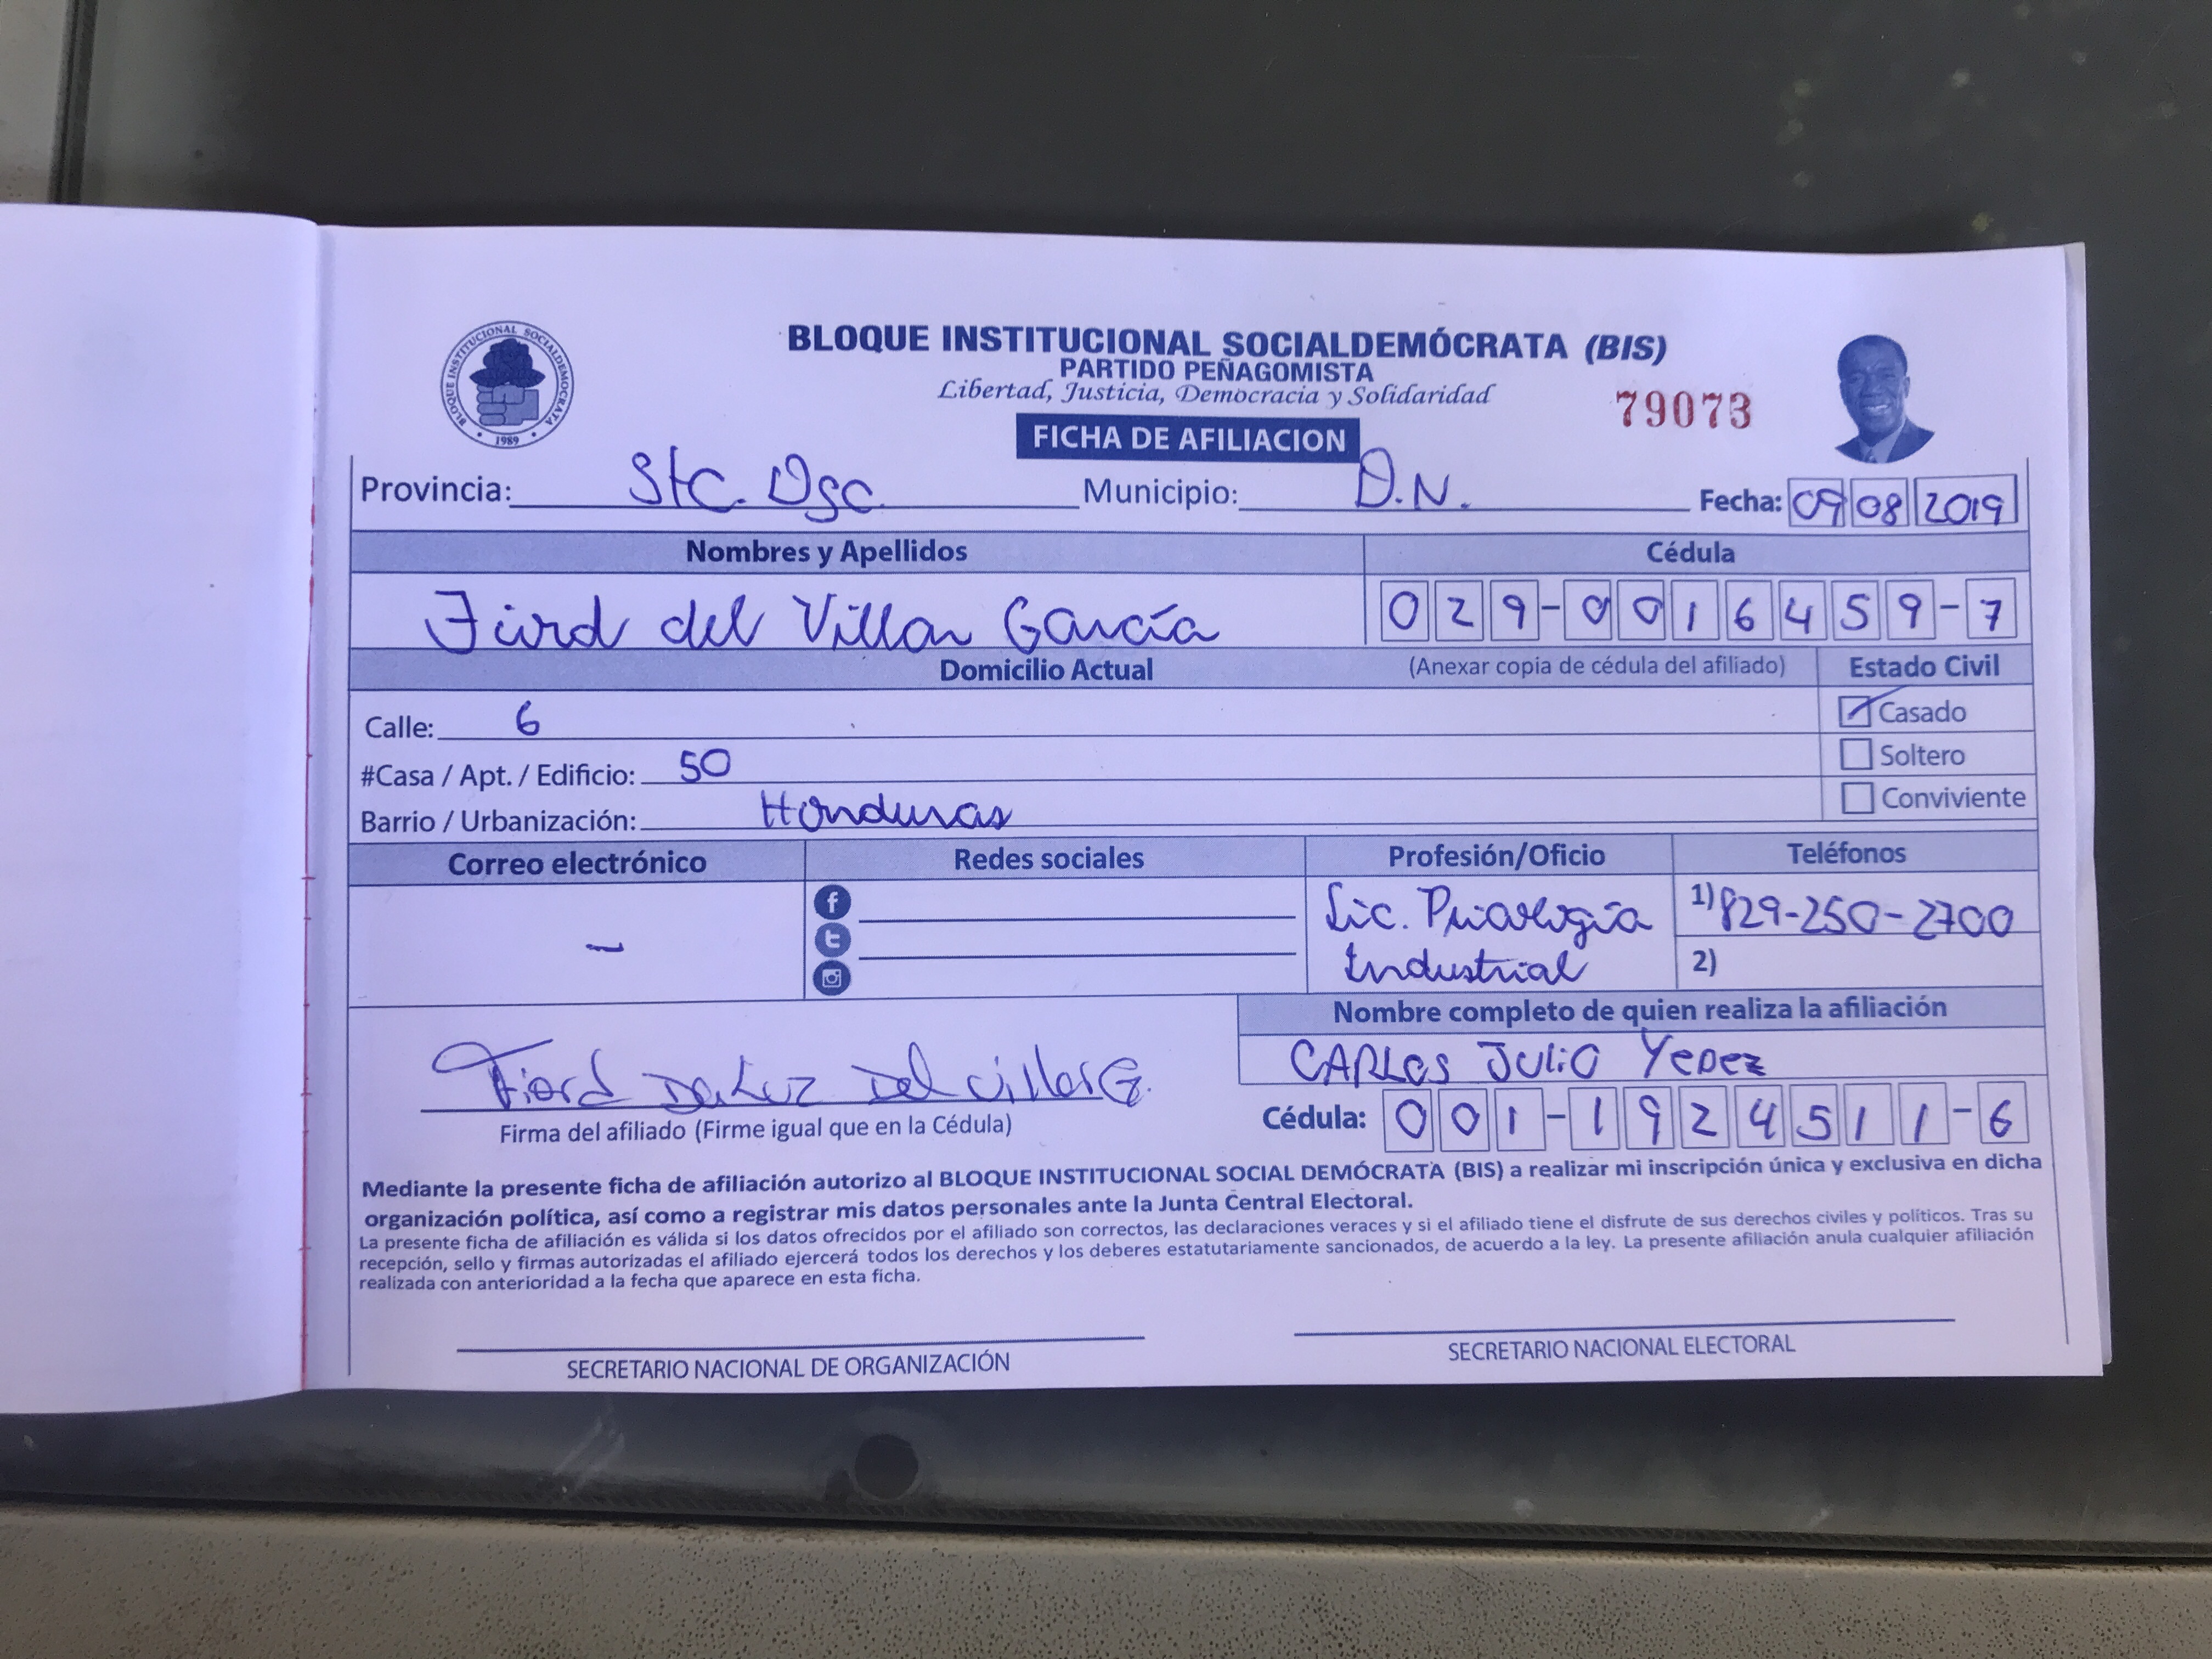 BLOQUE INSTITUCIONAL SOCIALDEMÓCRATA
1989
BLOQUE INSTITUCIONAL SOCIALDEMÓCRATA (BIS)
PARTIDO PEÑAGOMISTA
Libertad, Justicia, Democracia y Solidaridad
79073
FICHA DE AFILIACION
Provincia: Sto. Dgo. Municipio: D.N. Fecha: 09 08 2019
Nombres y Apellidos Cédula
del Villar García 029-0016459-7
Domicilio Actual (Anexar copia de cédula del afiliado) Estado Civil
Calle: 6 Casado
#Casa / Apt. / Edificio: 50 Soltero
Barrio / Urbanización: Honduras Conviviente
Correo electrónico Redes sociales Profesión/Oficio Teléfonos
Lic. Psicología 1) 829-250-2700
Industrial 2)
Nombre completo de quien realiza la afiliación
CARLOS JULIO YEPEZ
Fiord De Luz Del Villar G.
Firma del afiliado (Firme igual que en la Cédula) Cédula: 001-1924511-6
Mediante la presente ficha de afiliación autorizo al BLOQUE INSTITUCIONAL SOCIAL DEMÓCRATA (BIS) a realizar mi inscripción única y exclusiva en dicha
organización política, así como a registrar mis datos personales ante la Junta Central Electoral.
La presente ficha de afiliación es válida si los datos ofrecidos por el afiliado son correctos, las declaraciones veraces y si el afiliado tiene el disfrute de sus derechos civiles y políticos. Tras su
recepción, sello y firmas autorizadas el afiliado ejercerá todos los derechos y los deberes estatutariamente sancionados, de acuerdo a la ley. La presente afiliación anula cualquier afiliación
realizada con anterioridad a la fecha que aparece en esta ficha.
SECRETARIO NACIONAL DE ORGANIZACIÓN SECRETARIO NACIONAL ELECTORAL